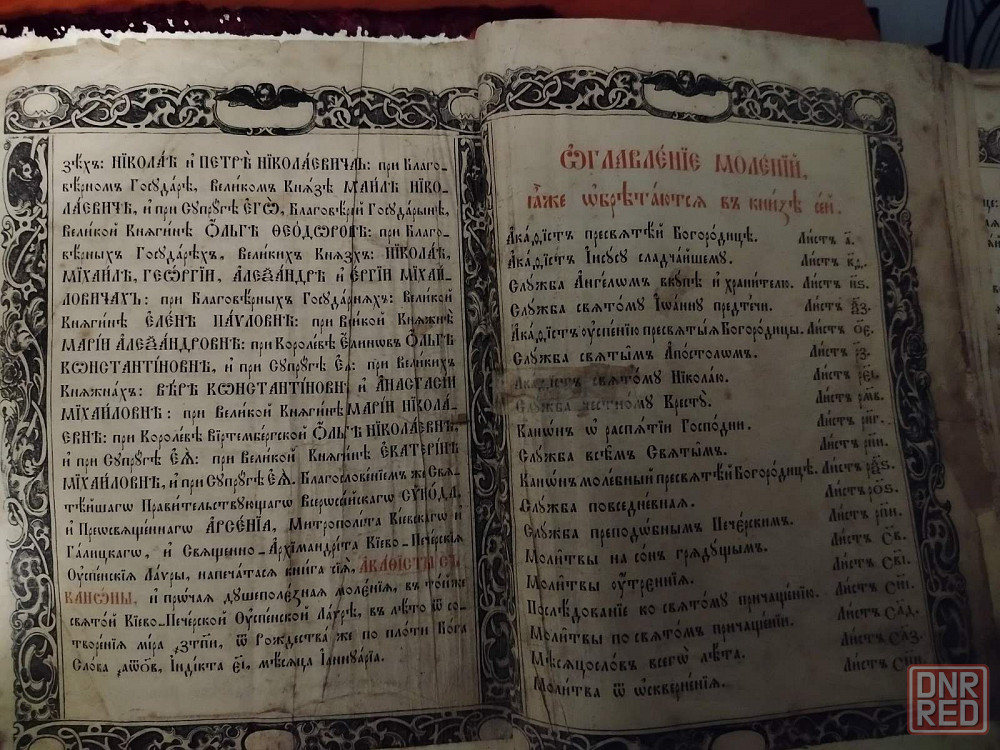 зѣхъ: НІКОЛАѢ и ПЕТРѢ НІКОЛАЕВИЧАХЪ: при Благо-
вѣрномъ Госуда́рѣ, Вели́комъ Кня́зѣ МІХАИЛѢ НІКО-
ЛА́ЕВИЧѢ, и при Супру́гѣ ЕГѠ̀, Благовѣ́рнѣй Госуда́рынѣ,
Вели́кой Княги́нѣ Ѻ҆́ЛЬГѢ ѲЕО́ДѠРОВНѢ: при Благо-
вѣ́рныхъ Госуда́рѣхъ, Вели́кихъ Князѣ́хъ: НІКОЛА́Ѣ,
МІХАИ́ЛѢ, ГЕѠ́РГІИ, АЛЕѮА́НДРѢ и СЕ́РГІИ МІХАЙ-
ЛОВИЧАХЪ: при Благовѣ́рныхъ Госуда́рыняхъ: Вели́кой
Княги́нѣ ЕЛЕ́НѢ ПА́VЛОВНѢ: при Вели́кой Княжнѣ̀
МАРІ́И АЛЕѮА́НДРОВНѢ: при Короле́вѣ Е́ллиновъ Ѻ҆́ЛЬГѢ
КѠНСТАНТІ́НОВНѢ, и при Супру́гѣ ЕѦ̀: при Вели́кихъ
Княжна́хъ: ВѢ́РѢ КѠНСТАНТІ́НОВНѢ и АНАСТАСІ́И
МІХА́ЙЛОВНѢ: при Вели́кой Княги́нѣ МАРІ́И НІКОЛА́-
ЕВНѢ: при Короле́вѣ Віртембе́ргской Ѻ҆́ЛЬГѢ НІКОЛА́ЕВНѢ,
и при Супру́гѣ ЕѦ̀: при Вели́кой Княги́нѣ ЕКАТЕРІ́НѢ
МІХА́ЙЛОВНѢ, и при Супру́гѣ ЕѦ̀. Благослове́ніемъ же Свя-
тѣ́йшагѡ Прави́тельствующагѡ Всеросси́йскагѡ СѴНО́ДА,
и Преѡсвяще́ннагѡ АРСЕ́НІА, Митрополі́та Кі́евскагѡ и
Га́лицкагѡ, и Свяще́нно-Архімандрі́та Кі́ево-Пече́рскія
Оуспе́нскія Ла́vры, напеча́тася кни́га сія̀, АКАѲІ́СТЫ СЪ
КАНѠ́НЫ, и про́чая душеполе́зная моле́нія, въ то́йже
свято́й Кі́ево-Пече́рской Оуспе́нской Ла́vрѣ, въ лѣ́то ѿ со-
творе́нія мі́ра ҂зтп҃, ѿ Рождества́ же по пло́ти Бо́га
Сло́ва ҂аѡов҃, Інді́кта еі҃, мѣ́сяца Іаннуа́рія.
Ѡ҆ГЛАВЛЕ́НІЕ МОЛЕ́НІЙ,
ꙗ҆̀же ѡ҆брѣта́ются въ кни́зѣ се́й.
Ака́ѳістъ пресвятѣ́й Богоро́дицѣ. Ли́стъ а҃.
Ака́ѳістъ Іису́су сладча́йшему. Ли́стъ кд҃.
Слу́жба А́нгеломъ вку́пѣ и храни́телю. Ли́стъ н҃ѕ.
Слу́жба свято́му Іѡа́нну предте́чи. Ли́стъ
Ака́ѳістъ оуспе́нію пресвяты́я Богоро́дицы. Ли́стъ ѻ҃е.
Слу́жба святы́мъ Апо́столѡмъ. Ли́стъ
Ака́ѳістъ свято́му Нікола́ю. Ли́стъ рє҃і.
Слу́жба честно́му Кресту̀. Ли́стъ рм҃в.
Канѡ́нъ ѡ҆ распя́тіи Госпо́дни. Ли́стъ рн҃г.
Слу́жба всѣ́мъ Святы́мъ. Ли́стъ рн҃и.
Канѡ́нъ моле́бный пресвятѣ́й Богоро́дицѣ. Ли́стъ
Слу́жба повседне́вная. Ли́стъ рѻ҃ѕ.
Слу́жба преподѡ́бнымъ Пече́рскимъ. Ли́стъ рп҃и.
Моли́твы на со́нъ гряду́щымъ. Ли́стъ с҃в.
Моли́твы оу҆́тренния. Ли́стъ св҃і.
Послѣ́дованіе ко свято́му причаще́нію. Ли́стъ си҃і.
Моли́твы по свято́мъ причаще́ніи. Ли́стъ
Мѣсяцосло́въ всегѡ̀ лѣ́та. Ли́стъ
Моли́тва ѿ ѡ҆скверне́нія. Ли́стъ
DNR
RED